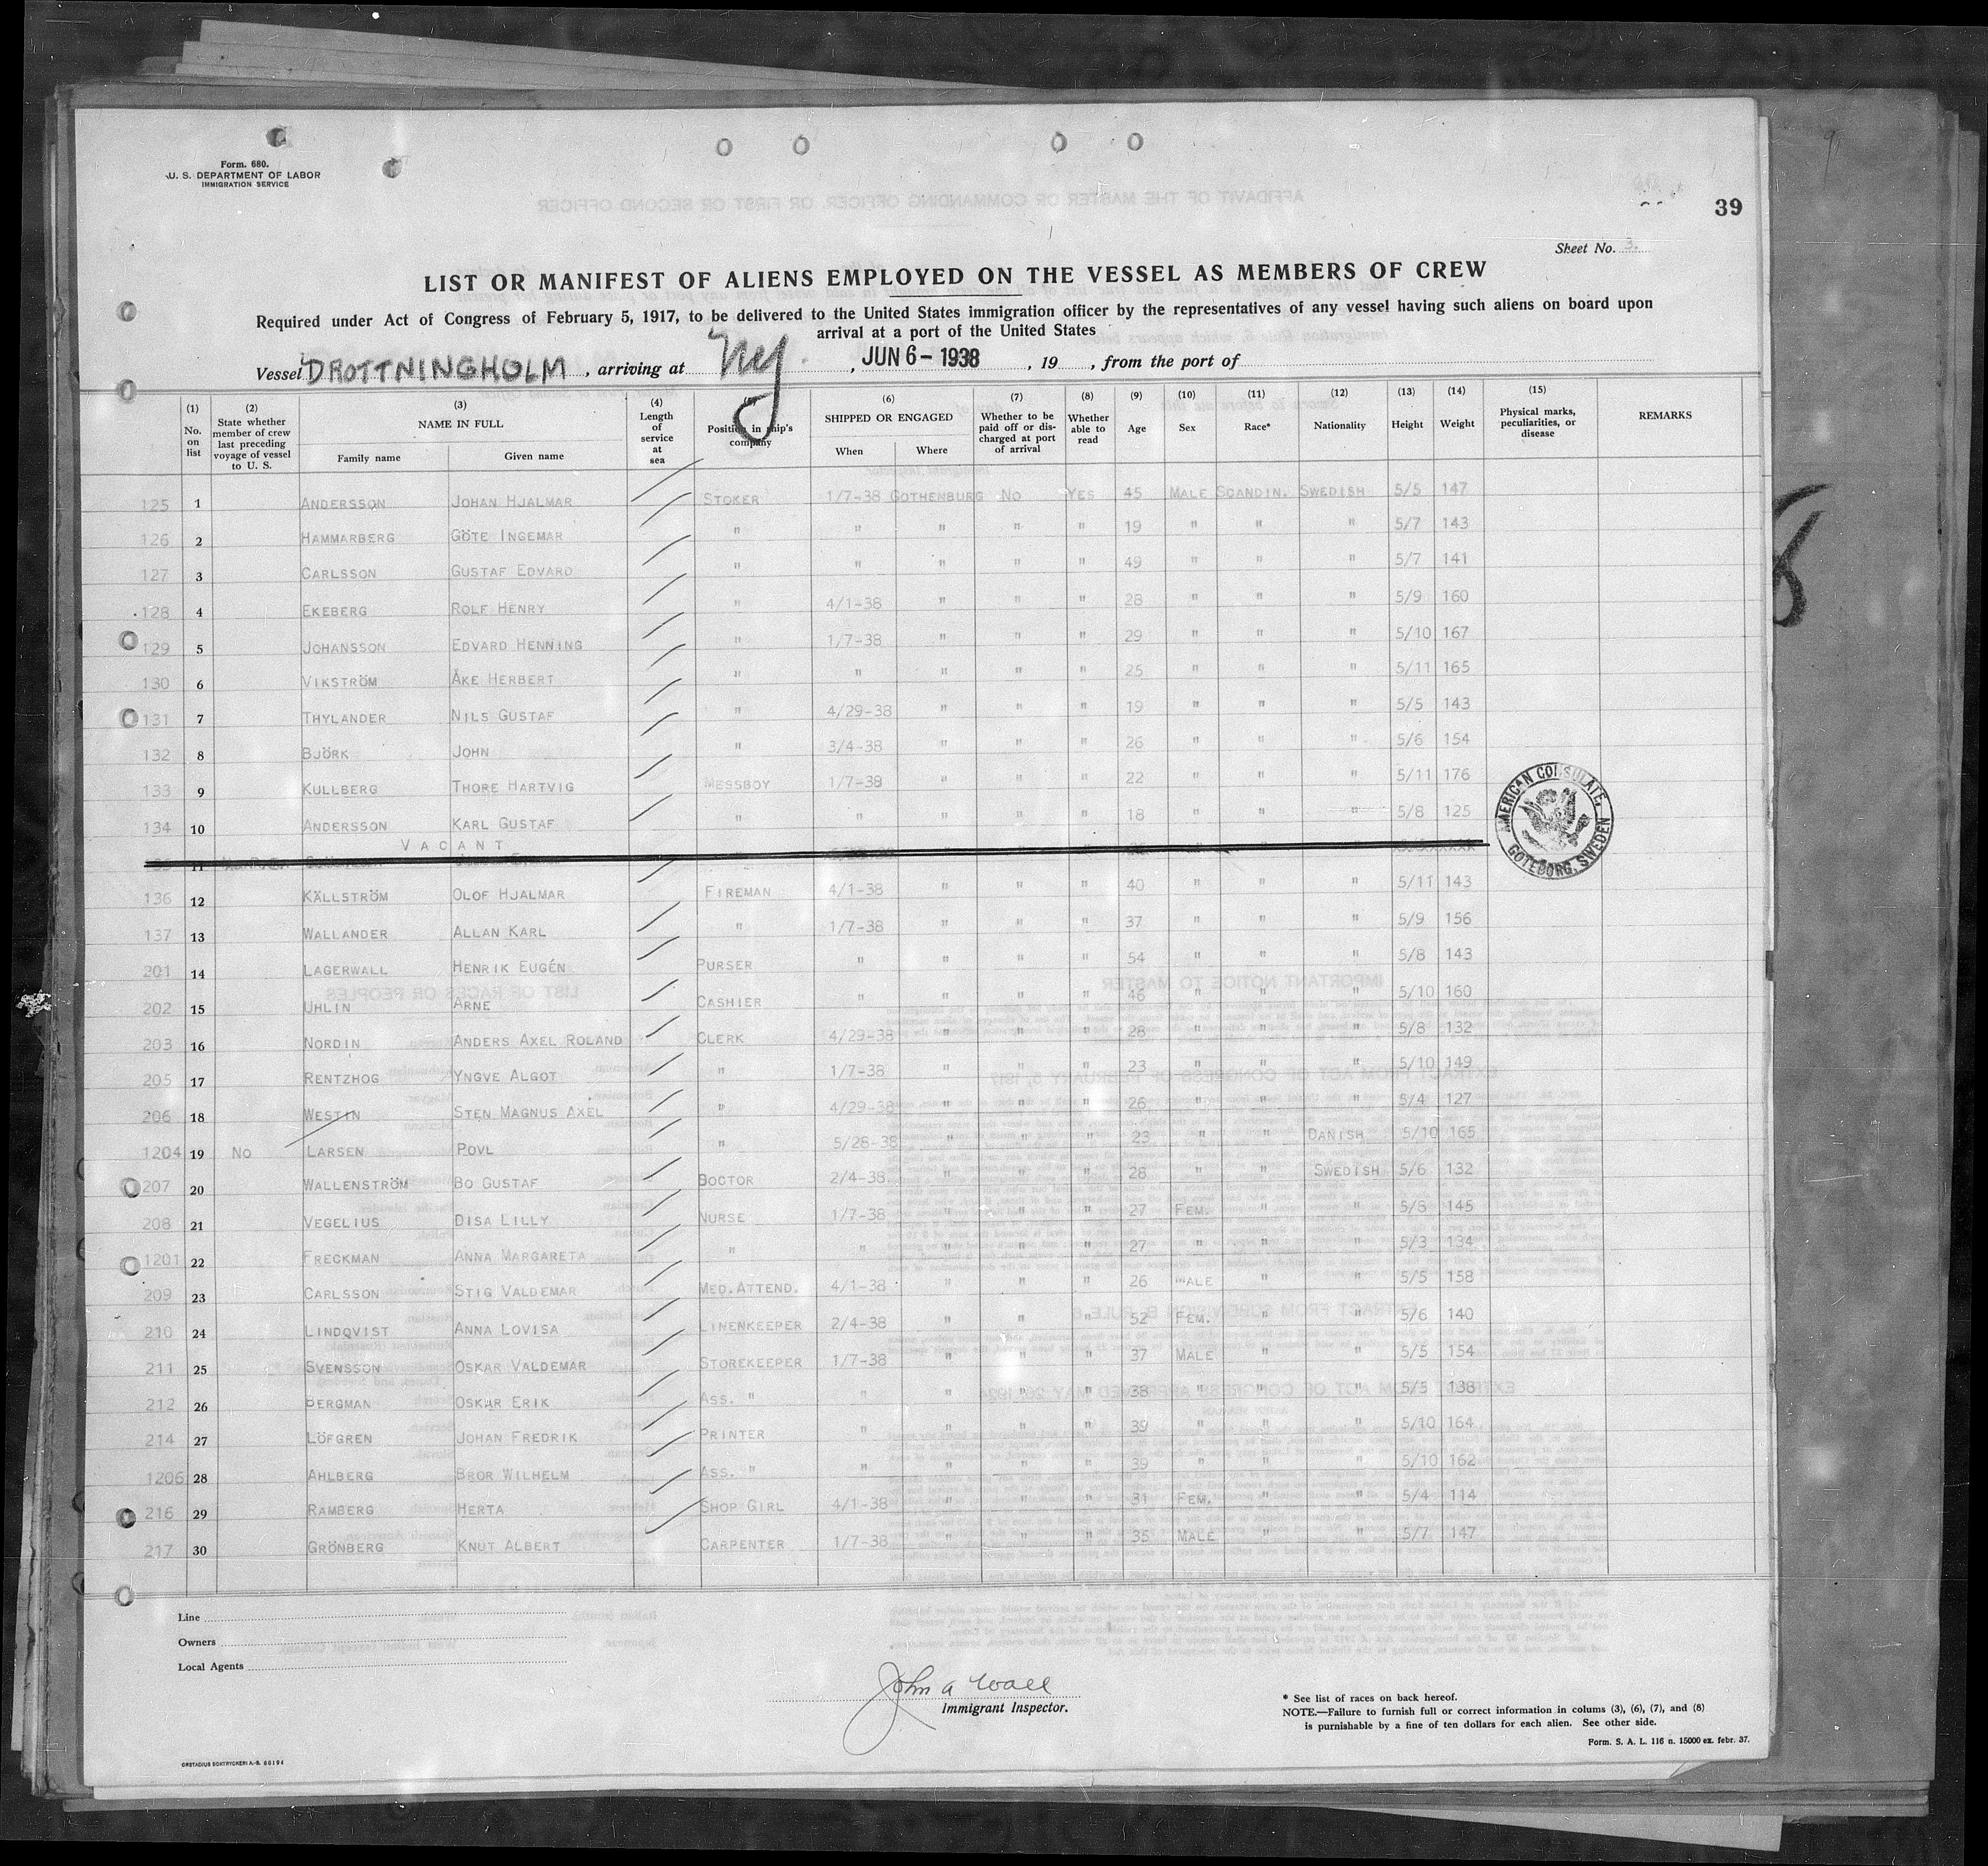 Form. 680.
U. S. DEPARTMENT OF LABOR
IMMIGRATION SERVICE
39
Sheet No. 3.
LIST OR MANIFEST OF ALIENS EMPLOYED ON THE VESSEL AS MEMBERS OF CREW
Required under Act of Congress of February 5, 1917, to be delivered to the United States immigration officer by the representatives of any vessel having such aliens on board upon
arrival at a port of the United States
Vessel DROTTNINGHOLM, arriving at Ny., JUN 6 - 1938, 19, from the port of
(1) No. on list (2) State whether member of crew last preceding voyage of vessel to U. S. (3) NAME IN FULL Family name Given name (4) Length of service at sea (5) Position in ship's company (6) SHIPPED OR ENGAGED When Where (7) Whether to be paid off or discharged at port of arrival (8) Whether able to read (9) Age (10) Sex (11) Race* (12) Nationality (13) Height (14) Weight (15) Physical marks, peculiarities, or disease REMARKS
125 1 ANDERSSON JOHAN HJALMAR STOKER 1/7-38 GOTHENBURG NO YES 45 MALE SCANDIN. SWEDISH 5/5 147
126 2 HAMMARBERG GÖTE INGEMAR " " " " " 19 " " " 5/7 143
127 3 CARLSSON GUSTAF EDVARD " " " " " 49 " " " 5/7 141
128 4 EKEBERG ROLF HENRY " 4/1-38 " " " 28 " " " 5/9 160
129 5 JOHANSSON EDVARD HENNING " 1/7-38 " " " 29 " " " 5/10 167
130 6 VIKSTRÖM ÅKE HERBERT " " " " " 25 " " " 5/11 165
131 7 THYLANDER NILS GUSTAF " 4/29-38 " " " 19 " " " 5/5 143
132 8 BJÖRK JOHN " 3/4-38 " " " 26 " " " 5/6 154
133 9 KULLBERG THORE HARTVIG MESSBOY 1/7-38 " " " 22 " " " 5/11 176
134 10 ANDERSSON KARL GUSTAF " " " " " 18 " " " 5/8 125
VACANT
11
136 12 KÄLLSTRÖM OLOF HJALMAR FIREMAN 4/1-38 " " " 40 " " " 5/11 143
137 13 WALLANDER ALLAN KARL " 1/7-38 " " " 37 " " " 5/9 156
201 14 LAGERWALL HENRIK EUGÉN PURSER " " " " 54 " " " 5/8 143
202 15 UHLIN ARNE CASHIER " " " " 46 " " " 5/10 160
203 16 NORDIN ANDERS AXEL ROLAND CLERK 4/29-38 " " " 28 " " " 5/8 132
205 17 RENTZHOG YNGVE ALGOT " 1/7-38 " " " 23 " " " 5/10 149
206 18 WESTIN STEN MAGNUS AXEL " 4/29-38 " " " 26 " " " 5/4 127
1204 19 NO LARSEN POVL " 5/28-38 " " " 23 " " DANISH 5/10 165
207 20 WALLENSTRÖM BO GUSTAF DOCTOR 2/4-38 " " " 28 " " SWEDISH 5/6 132
208 21 VEGELIUS DISA LILLY NURSE 1/7-38 " " " 27 FEM. " " 5/8 145
1201 22 FRECKMAN ANNA MARGARETA " " " " " 27 " " " 5/3 134
209 23 CARLSSON STIG VALDEMAR MED. ATTEND. 4/1-38 " " " 26 MALE " " 5/5 158
210 24 LINDQVIST ANNA LOVISA LINENKEEPER 2/4-38 " " " 52 FEM. " " 5/6 140
211 25 SVENSSON OSKAR VALDEMAR STOREKEEPER 1/7-38 " " " 37 MALE " " 5/5 154
212 26 BERGMAN OSKAR ERIK ASS. " " " " " 38 " " " 5/5 138
214 27 LÖFGREN JOHAN FREDRIK PRINTER " " " " 39 " " " 5/10 164
1206 28 AHLBERG BROR WILHELM ASS. " " " " " 39 " " " 5/10 162
216 29 RAMBERG HERTA SHOP GIRL 4/1-38 " " " 31 FEM. " " 5/4 114
217 30 GRÖNBERG KNUT ALBERT CARPENTER 1/7-38 " " " 35 MALE " " 5/7 147
AMERICAN CONSULATE, GOTEBORG, SWEDEN
Line
Owners
Local Agents
John A Wall
Immigrant Inspector.
* See list of races on back hereof.
NOTE.—Failure to furnish full or correct information in colums (3), (6), (7), and (8)
is punishable by a fine of ten dollars for each alien. See other side.
Form. S. A. L. 116 n. 15000 ex. febr. 37.